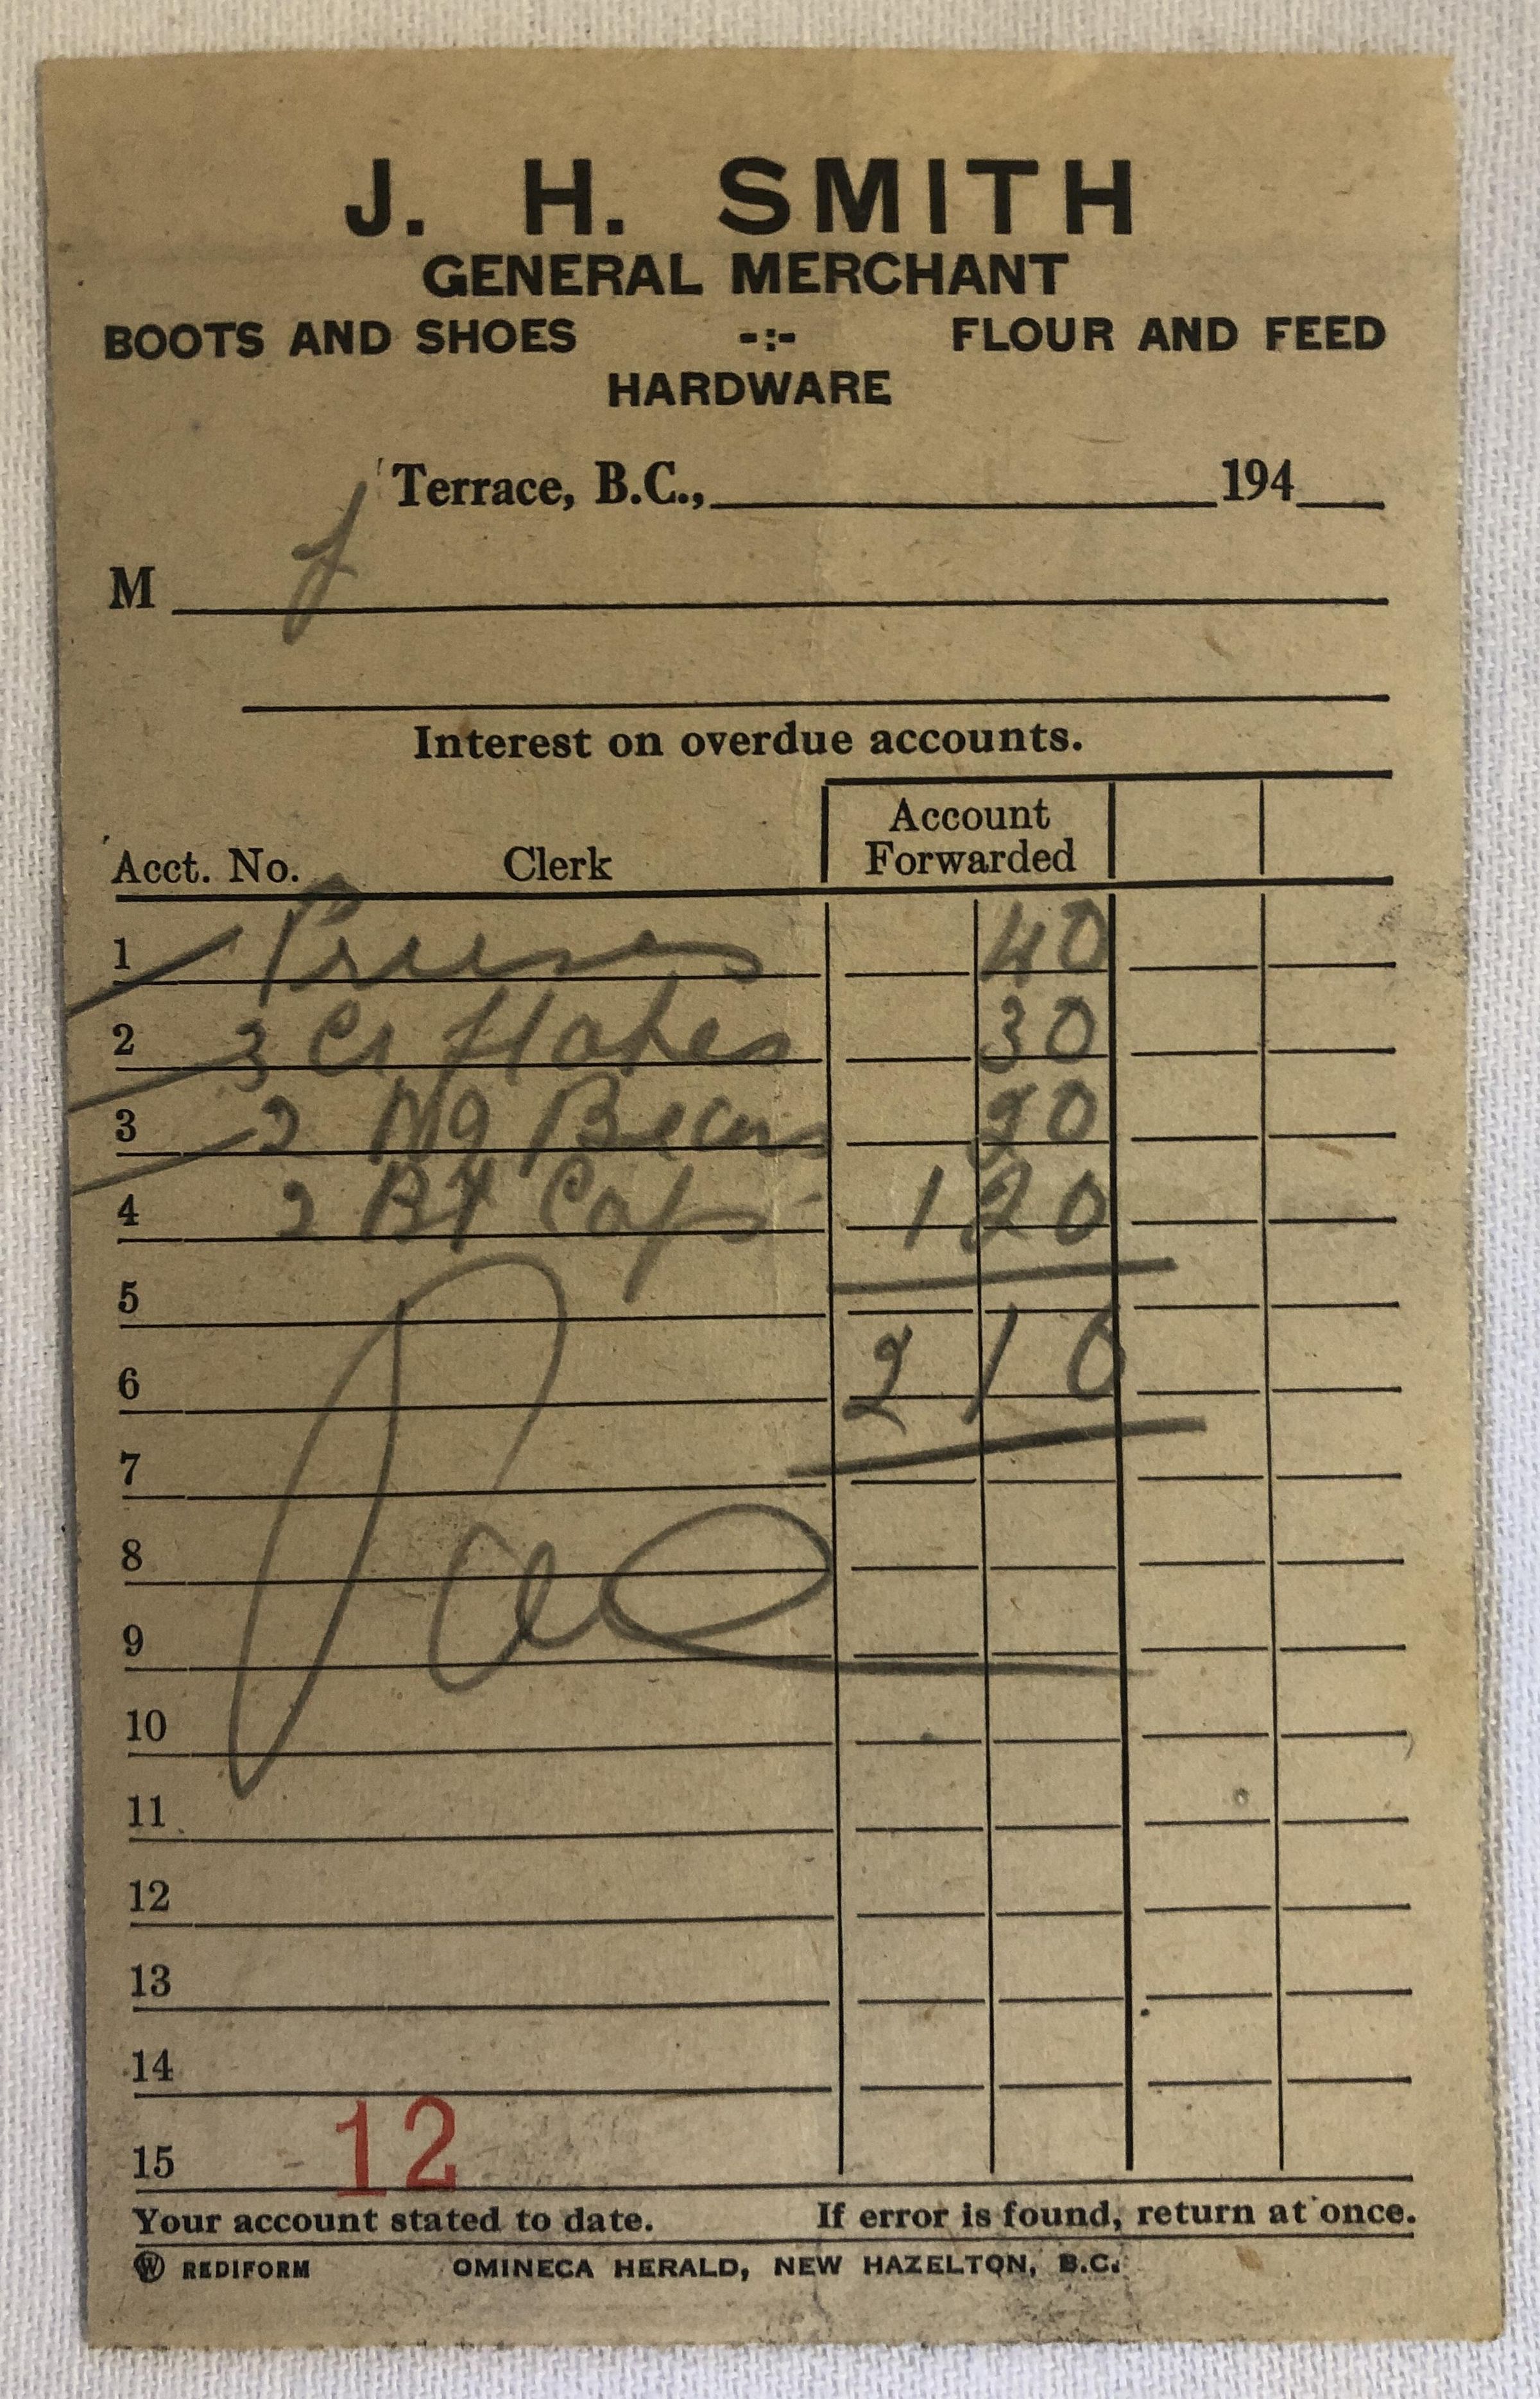 J. H. SMITH
GENERAL MERCHANT
BOOTS AND SHOES -:- FLOUR AND FEED
HARDWARE
Terrace, B.C., 194
M
Interest on overdue accounts.
Account
Forwarded
Acct. No. Clerk
1 Prunes 40
2 3 Cr Flakes 30
3 2 Beans 20
4 2 Caps 1 20
5
6 2 10
7
8
9
10
11
12
13
14
12
15
Your account stated to date. If error is found, return at once.
W REDIFORM OMINECA HERALD, NEW HAZELTON, B.C.